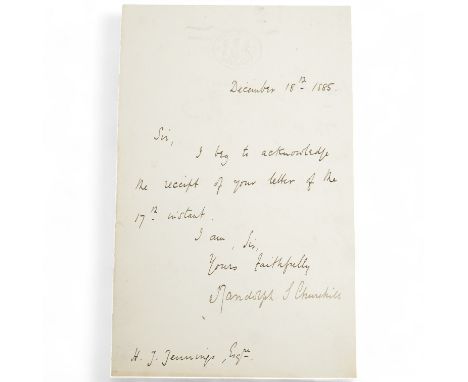 December 18th 1885.
Sir,
I beg to acknowledge
the receipt of your letter of the
17th instant.
I am, Sir,
Yours faithfully
Randolph S Churchill
H. J. Jennings, Esqre.